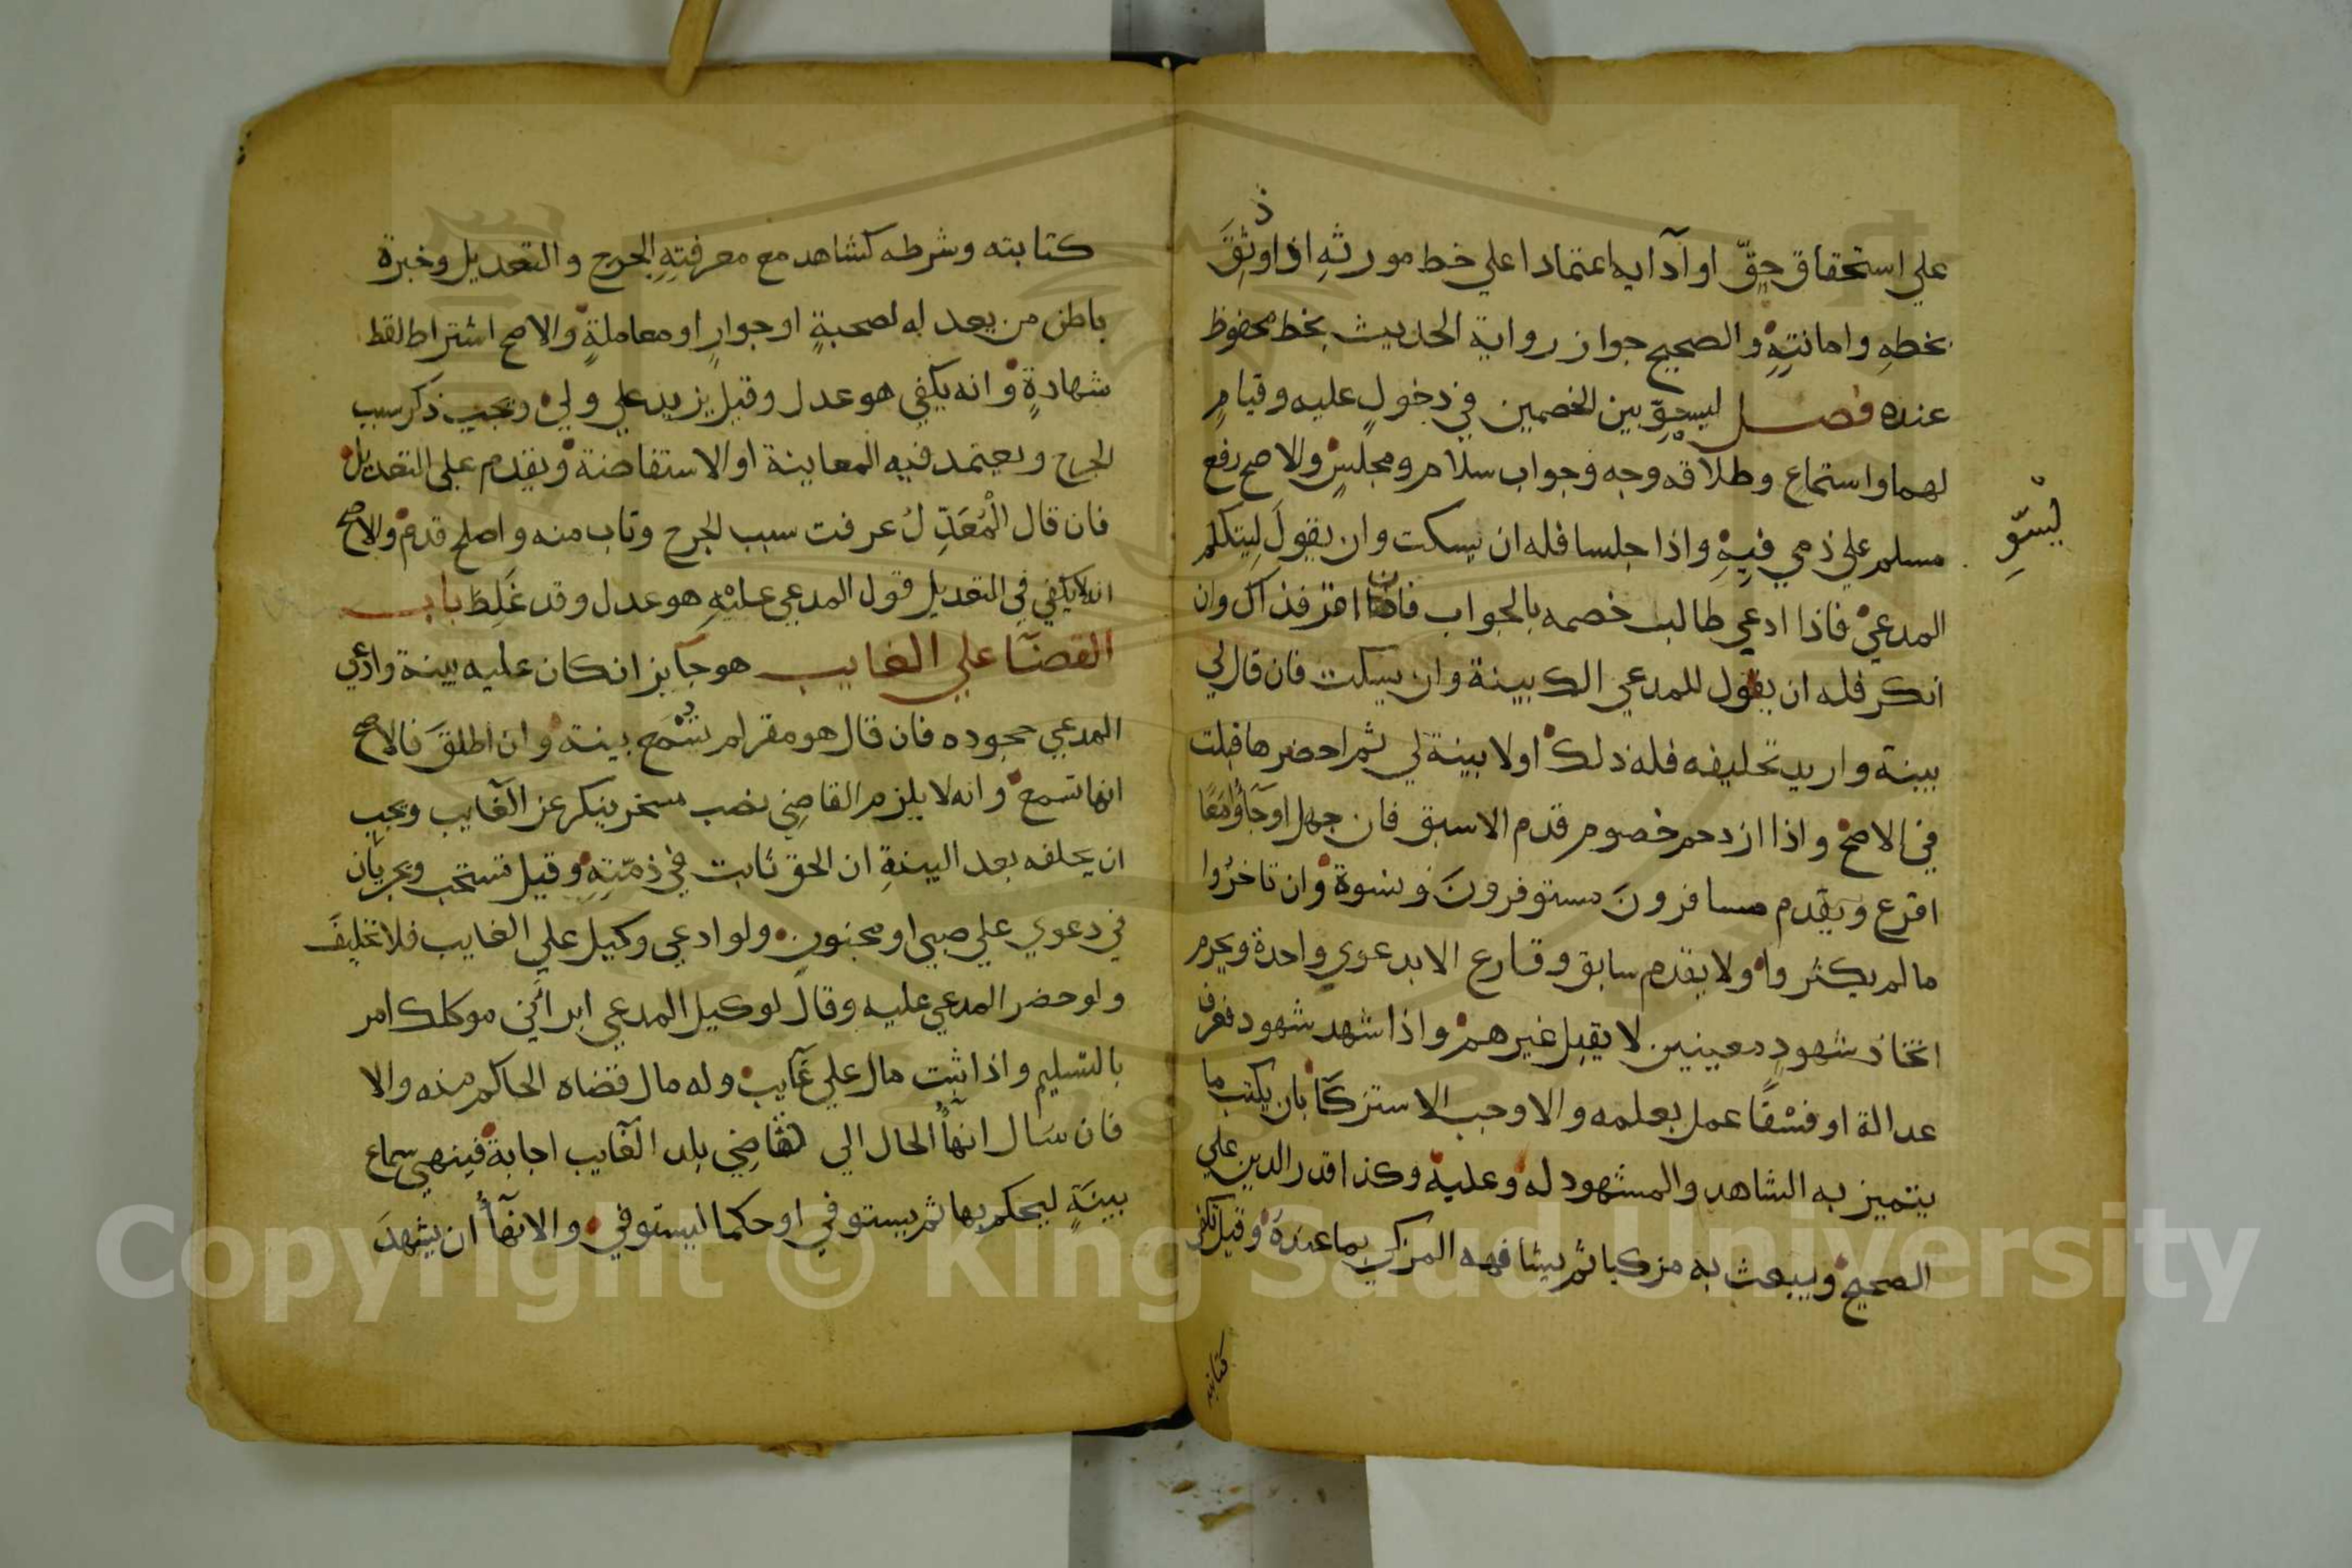 علي استحقاق حق او آدايه اعتمادا علي خط مورثه اذا وثق
بخطه وامانته والصحيح جواز رواية الحديث بخط محفوظ
عنده فصل ليسو بين الخصمين في دخول عليه وقيام
لهما واستماع وطلاقه وجه وجواب سلام ومجلس والاصح رفع
مسلم علي ذمي فيه واذا جلسا فله ان يسكت وان يقول ليتكلم
المدعي فاذا ادعي طالب خصمه بالجواب فان اقر فذاك وان
انكر فله ان يقول للمدعي الك بينة وان يسكت فان قال لي
بينة واريد تحليفه فله ذلك اولا بينة لي ثم احضرها قبلت
في الاصح واذا ازدحم خصوم قدم الاسبق فان جهل او جآؤا معًا
اقرع ويقدم مسافرون مستوفرون ونسوة وان تاخروا
مالم يكثروا ولا يقدم سابق وقارع الا بدعوي واحدة ويحرم
اتخاذ شهودٍ معينين لا يقبل غيرهم واذا شهد شهود فعرف
عدالة او فسْقًا عمل بعلمه والا وجب الاستزكآ بان يكتب ما
يتميز به الشاهد والمشهود له وعليه وكذا قدر الدين علي
الصحيح ويبعث به مزكيا ثم يشافهه المزكي بما عنده وقيل تكفي
ليسوِّ
كتابته
كتابته وشرطه كشاهد مع معرفتهِ الجرح والتعديل وخبرة
باطن من يعدله لصحبةٍ او جوارٍ او معاملةٍ والاصح اشتراط لقط
شهادةٍ وانه يكفي هو عدل وقيل يزيد علي ولي ويجب ذكر سبب
الجرح ويعتمد فيه المعاينة او الاستفاضة ويقدم علي التعديل
فان قال الْمُعَدِّلُ عرفت سبب الجرح وتاب منه واصلح قدم والاصح
انه لا يكفي في التعديل قول المدعي عليْهِ هو عدل وقد غَلِطَ باب
القضآ علي الغايب هو جآيز ان كان عليه بينة وادعي
المدعي جحوده فان قال هو مقر لم تسْمع بينة وان اطلقَ فالاصح
انها تسمع وانه لا يلزم القاضي نصب مسخر ينكر عن الغآيب ويجب
ان يحلفه بعد البينةِ ان الحق ثابت في ذمّتِهِ وقيل تستحب ويجريان
في دعوي علي صبي او مجنون ولو ادعي وكيل علي الغايب فلا تحليفَ
ولو حضر المدعي عليه وقال لوكيل المدعي ابرأني موكلك امر
بالتسليم واذا ثبت مال علي غآيب وله مال قضاه الحاكم منه والا
فان سَال انهآُ الحال الي قاضي بلد الغآيب اجابة فينهي سماع
بينَةٍ ليحكم بها ثم يستوفي او حكما ليستوفي والانهآُ ان يشهدَ